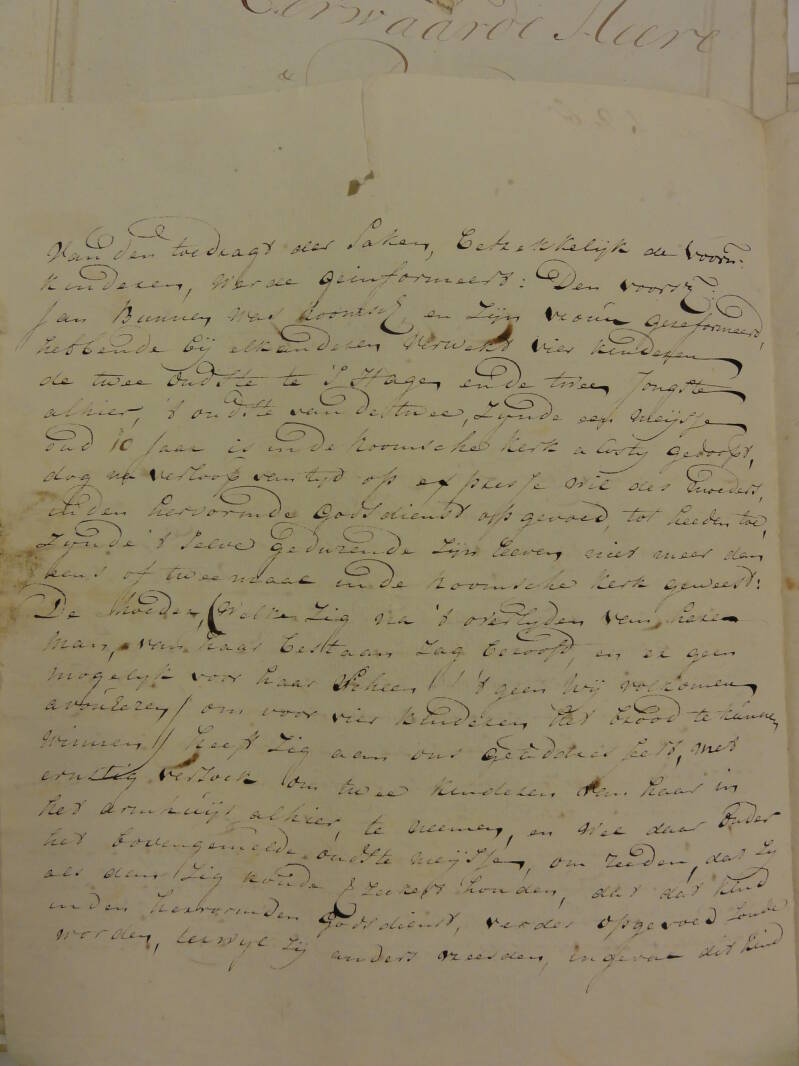 Eerwaarde Heere
Van den toedragt der Saken, betrekkelijk de voorn:
kinderen, werde geinformeert: Den voorsz:
Jan Bunnen was Roomsch, en zijn vrouw gereformeerd,
hebbende bij elkanderen verwekt vier kinderen
de twee oudste te 's Hage, en de twee Jongste
alhier, 't oudste van des twee, zijnde een meijsje
oud 10 Jaar is in de Roomsche kerk aldaar gedoopt,
dog na verloop van tijd op expresse wil des moeders,
in den hervormde Godsdienst op gevoed, tot heeden toe,
zijnde 't selve gedurende zijn leeven niet meer dan
eens of tweemaal in de Roomsche kerk geweest:
De Moeder, (welke zig na 't overlyden van heren
man, van haar bestaan zag berooft, en er geen
mogelijk voor haar scheen / 't geen wij volkomen
avoueren / om voor vier kinderen het brood te kunnen
winnen / heeft zig aan ons geaddresseert, met
ernstig versoek om twee kinderen van haar in
het armhuijs alhier, te neemen, en wel daar onder
het bovengemelde oudste meijsje, om reeden, dat zij
als dan zig konde verzekert houden, dat dat kind
in den hervormden Godsdienst, verder opgevoed zoude
worden, terwijl zij anders vreesden, ingeval dit kind